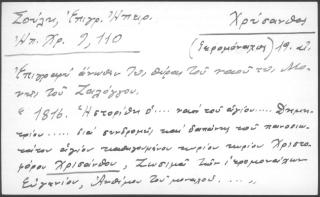 Σούλη, Ἐπιγρ. Ἠπειρ. Χρύσανθος
Ἠπ. Χρ. 9, 110 (ἱερομόναχος) 19. αἰ.
Ἐπιγραφὴ ἄνωθεν τῆς θύρας τοῦ ναοῦ τῆς Μο-
νῆς τοῦ Ζαλόγγου.
" 1816. Ἱστορίθη ὁ .... ναὸ τοῦ ἁγίου .... Δημη-
τρίου ..... διὰ συνδρομῆς καὶ δαπάνης τοῦ πανοσιω-
τάτου ἁγίου καθηγουμένου κυρίου κυρίου Χριστο-
φόρου Χρισάνθου, Ζωσιμᾶ τῶν ἱερομονάχων
Εὐγενίου, Ἀνθίμου τοῦ μοναχοῦ. . . . "